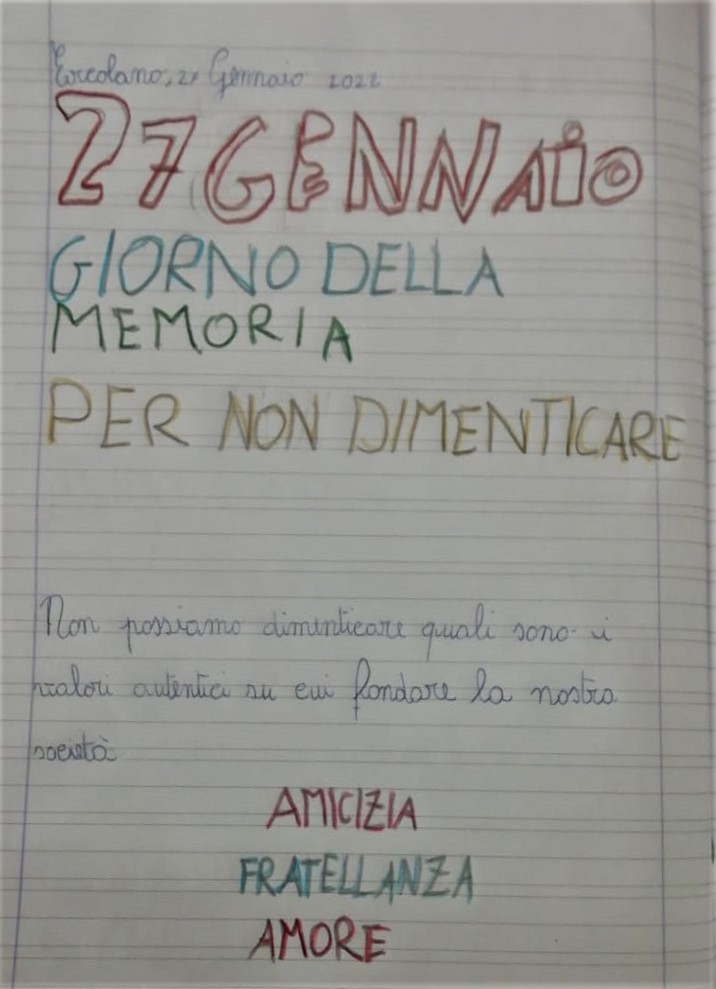 Ercolano, 27 Gennaio 2022
27 GENNAIO
GIORNO DELLA
MEMORIA
PER NON DIMENTICARE
Non possiamo dimenticare quali sono i
valori autentici su cui fondare la nostra
società
AMICIZIA
FRATELLANZA
AMORE